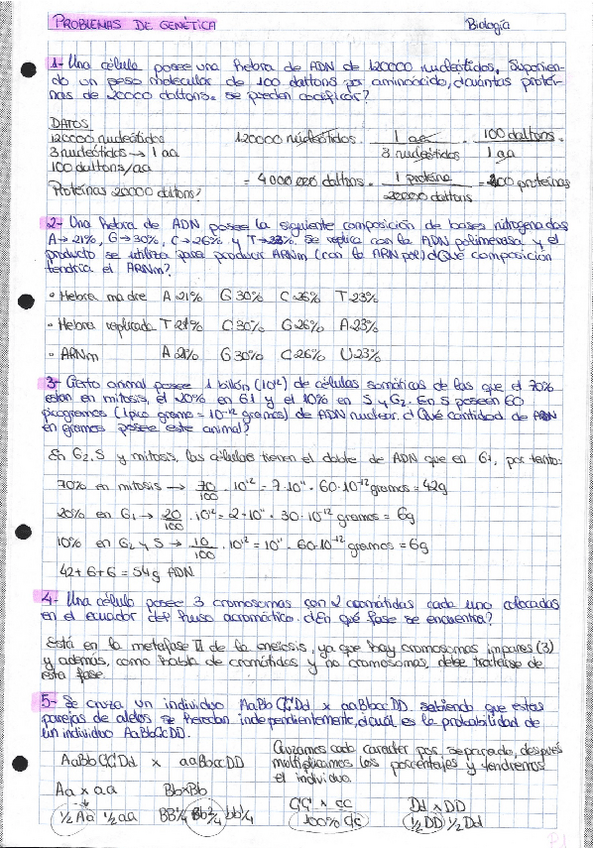 PROBLEMAS DE GENÉTICA Biología
1- Una célula posee una hebra de ADN de 120000 nucleótidos. Suponien-
do un peso molecular de 100 daltons por aminoácido, ¿cuántas proteí-
nas de 20000 daltons se pueden codificar?
DATOS
120000 nucleótidos
3 nucleótidos → 1 aa
100 daltons/aa
Proteínas 20000 daltons?
120000 nucleótidos · 1 aa / 3 nucleótidos · 100 daltons / 1 aa
= 4000000 daltons · 1 proteína / 20000 daltons = 200 proteínas
2- Una hebra de ADN posee la siguiente composición de bases nitrogenadas
A→21%, G→30%, C→26% y T→23%. Se replica con la ADN polimerasa y el
producto se utiliza para producir ARNm (con la ARN pol) ¿Qué composición
tendría el ARNm?
• Hebra madre A 21% G 30% C 26% T 23%
• Hebra replicada T 21% C 30% G 26% A 23%
• ARNm A 21% G 30% C 26% U 23%
3- Cierto animal posee 1 billón (10¹²) de células somáticas de las que el 70%
están en mitosis, el 20% en G1 y el 10% en S y G₂. En S poseen 60
picogramos (1 pico gramo = 10⁻¹² gramos) de ADN nuclear. ¿Qué cantidad de ADN
en gramos posee este animal?
En G₂, S y mitosis, las células tienen el doble de ADN que en G1, por tanto:
70% en mitosis → 70/100 · 10¹² = 7·10¹¹ · 60·10⁻¹² gramos = 42g
20% en G₁ → 20/100 · 10¹² = 2·10¹¹ · 30·10⁻¹² gramos = 6g
10% en G₂ y S → 10/100 · 10¹² = 10¹¹ · 60·10⁻¹² gramos = 6g
42+6+6 = 54g ADN
4- Una célula posee 3 cromosomas con 2 cromátidas cada uno colocadas
en el ecuador del huso acromático. ¿En qué fase se encuentra?
Está en la metafase II de la meiosis, ya que hay cromosomas impares (3)
y además, como habla de cromátidas y no cromosomas, debe tratarse de
esta fase.
5- Se cruza un individuo AaBbCCDd x aaBbccDD sabiendo que estas
parejas de alelos se heredan independientemente, ¿cuál es la probabilidad de
un individuo AaBbCcDD.
AaBbCCDd x aaBbccDD
Cruzamos cada carácter por separado, después
multiplicamos los porcentajes y tendremos
el individuo.
Aa x aa Bb x Bb CC x cc Dd x DD
1/2 Aa 1/2 aa BB 1/4 Bb 2/4 bb 1/4 100% Cc 1/2 DD 1/2 Dd
P1